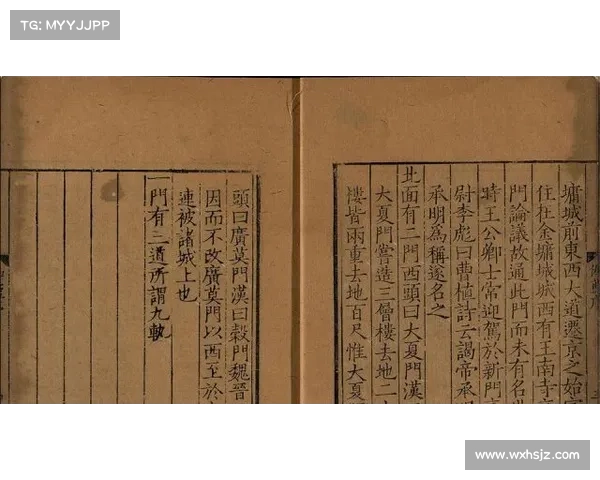 TG: MYYJJPP
墉城前東西大道遷京之始
住在金墉城城西有王南寺
門論議故通此門而未有名
時王公卿士常迎駕於新門
尉李彪曰曹植詩云謁帝承
承明為稱遂名之
北面有二門西頭曰大夏門漢
大夏門嘗造三層樓去地二
樓皆兩重去地百尺惟大夏
頭曰廣莫門漢曰穀門魏晉
因而不改廣莫門以西至於
連被諸城上也
一門有三道所謂九軌
www.wxhsjz.com